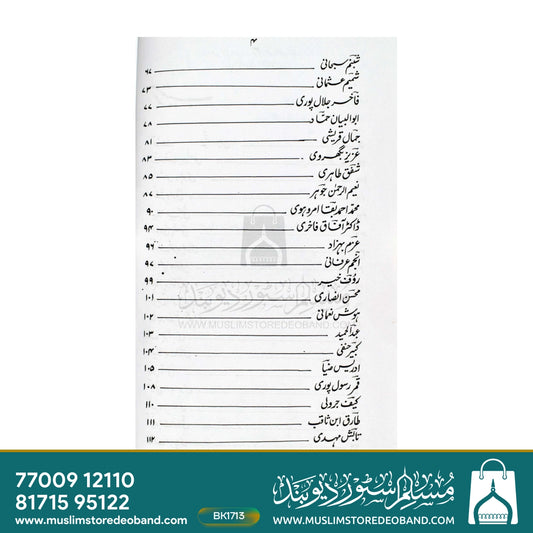 ۴
شبنم سبحانی ۶۷
شمیم عثمانی ۷۳
فاخر جلال پوری ۷۷
ابوالبیان حماد ۷۸
جمال قریشی ۸۱
عزیز بگھروی ۸۳
شفق طاہری ۸۵
نعیم الرحمٰن جوہر ۸۷
محمد احمد بقا امروہوی ۹۰
ڈاکٹر آفاق فاخری ۹۴
عزم بہزاد ۹۶
انجم عرفانی ۹۷
رؤف خیر ۹۹
محسن انصاری ۱۰۱
ہوش نعمانی ۱۰۲
عبدالحمید ۱۰۳
کبیر حنفی ۱۰۴
ادریس ضیا ۱۰۵
قمر رسول پوری ۱۰۸
کیف جرولی ۱۱۰
طارق ابن ثاقب ۱۱۱
تابش مہدی ۱۱۲
مسلم سٹور دیوبند
WWW.MUSLIMSTOREDEOBAND.COM
77009 12110
81715 95122
www.muslimstoredeoband.com
BK1713
مسلم سٹور دیوبند
WWW.MUSLIMSTOREDEOBAND.COM